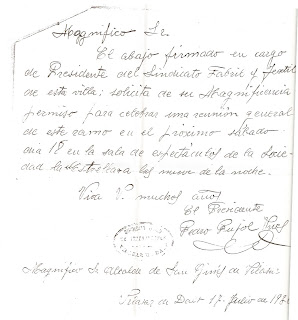 Magnífico Sr.
El abajo firmado en cargo
de Presidente del Sindicato Fabril y Textil
de esta villa; solicita de su Magnificencia
permiso para celebrar una reunión general
de este ramo en el próximo sábado
día 18 en la sala de espectáculos de la Socie-
dad a las nueve de la noche.
Viva V. muchos años
El Presidente
Pedro Pujol
Magnífico Sr Alcalde de San Ginés de Vilasar
Vilasar de Dalt 17 Junio de